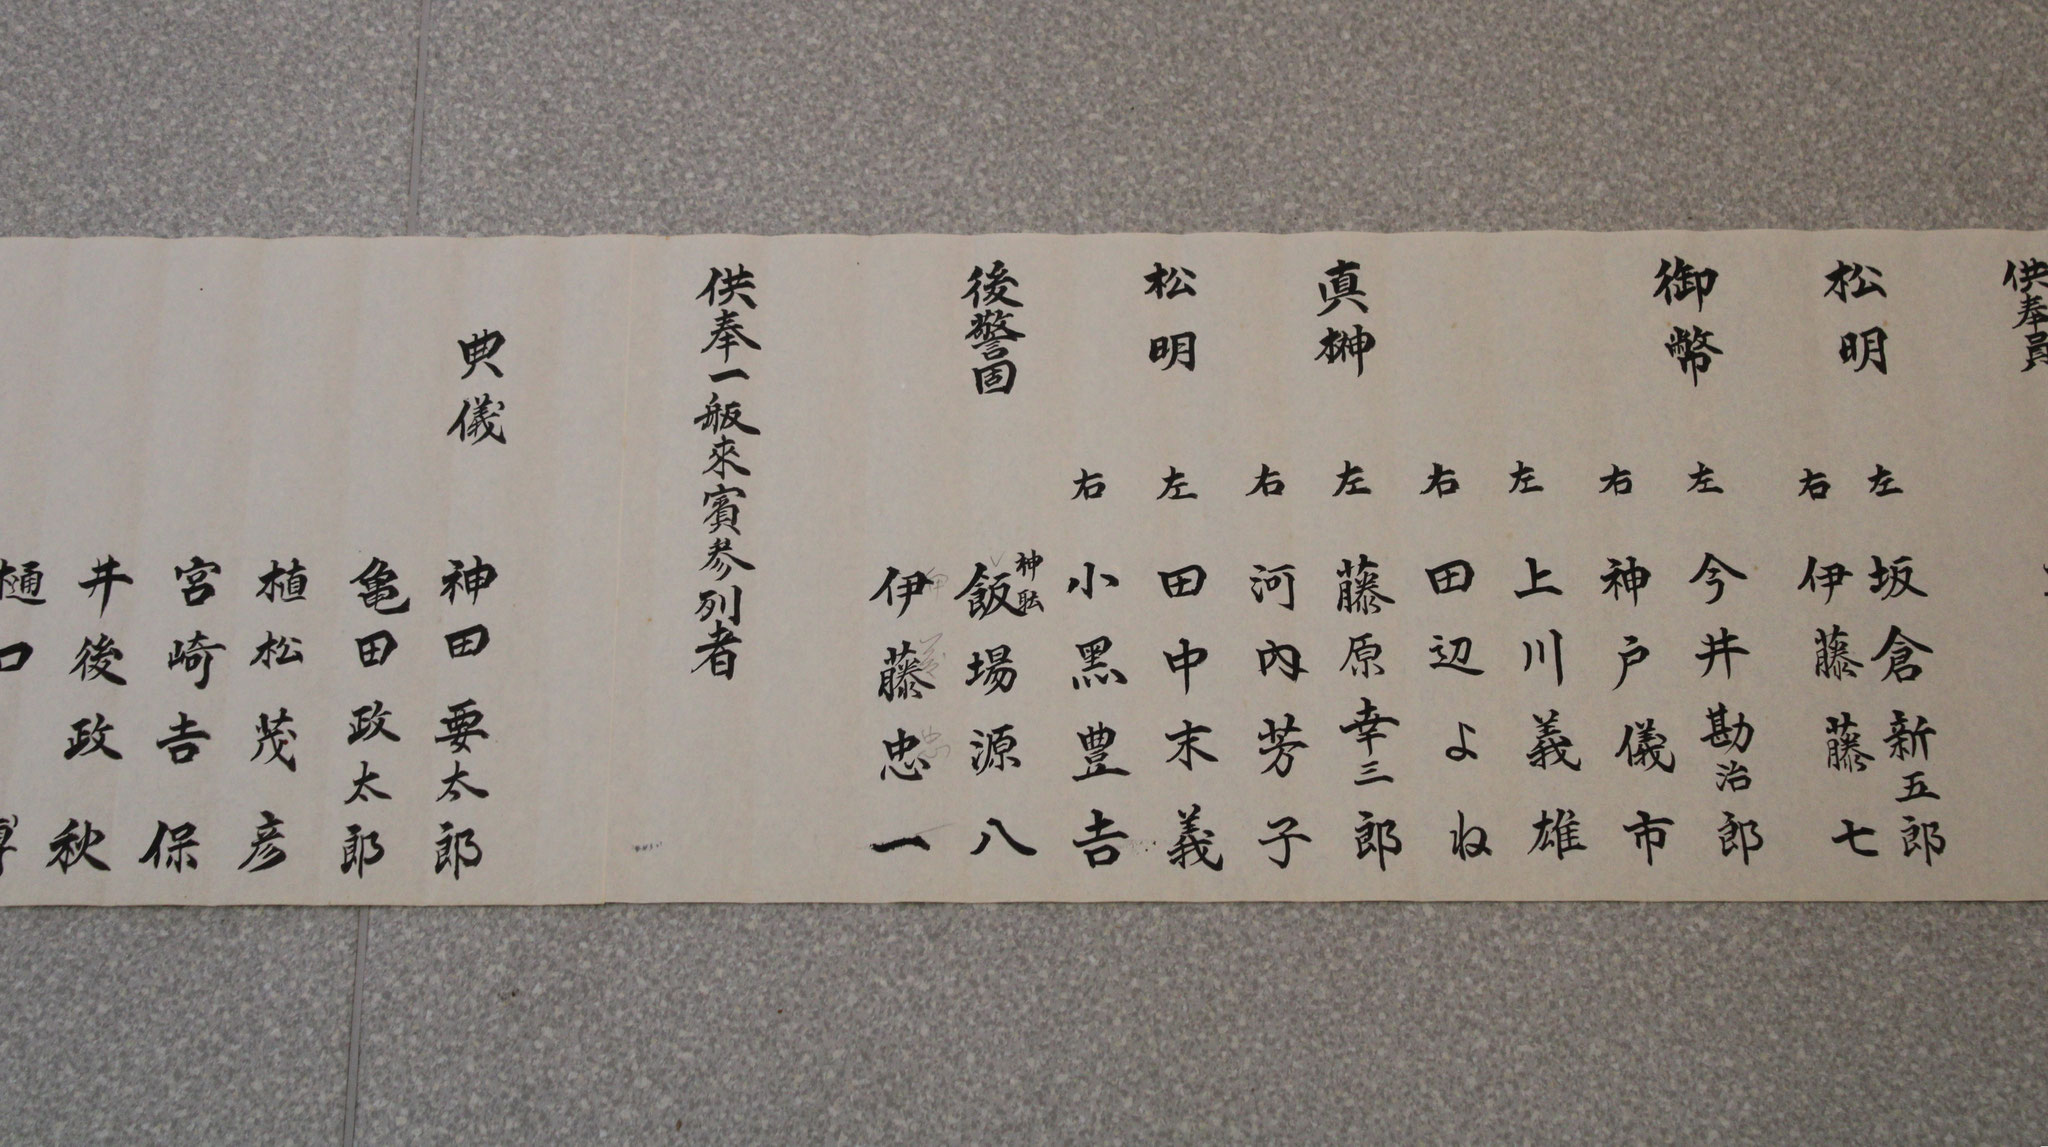 供奉員
松明
左 坂倉新五郎
右 伊藤藤七
御幣
左 今井勘治郎
右 神戸儀市
左 上川義雄
右 田辺よね
真榊
左 藤原幸三郎
右 河内芳子
松明
左 田中末義
右 小黒豊吉
後警固
神職
飯場源八
伊藤忠一
供奉一般來賓参列者
典儀
神田要太郎
亀田政太郎
植松茂彦
宮崎吉保
井後政秋
樋口